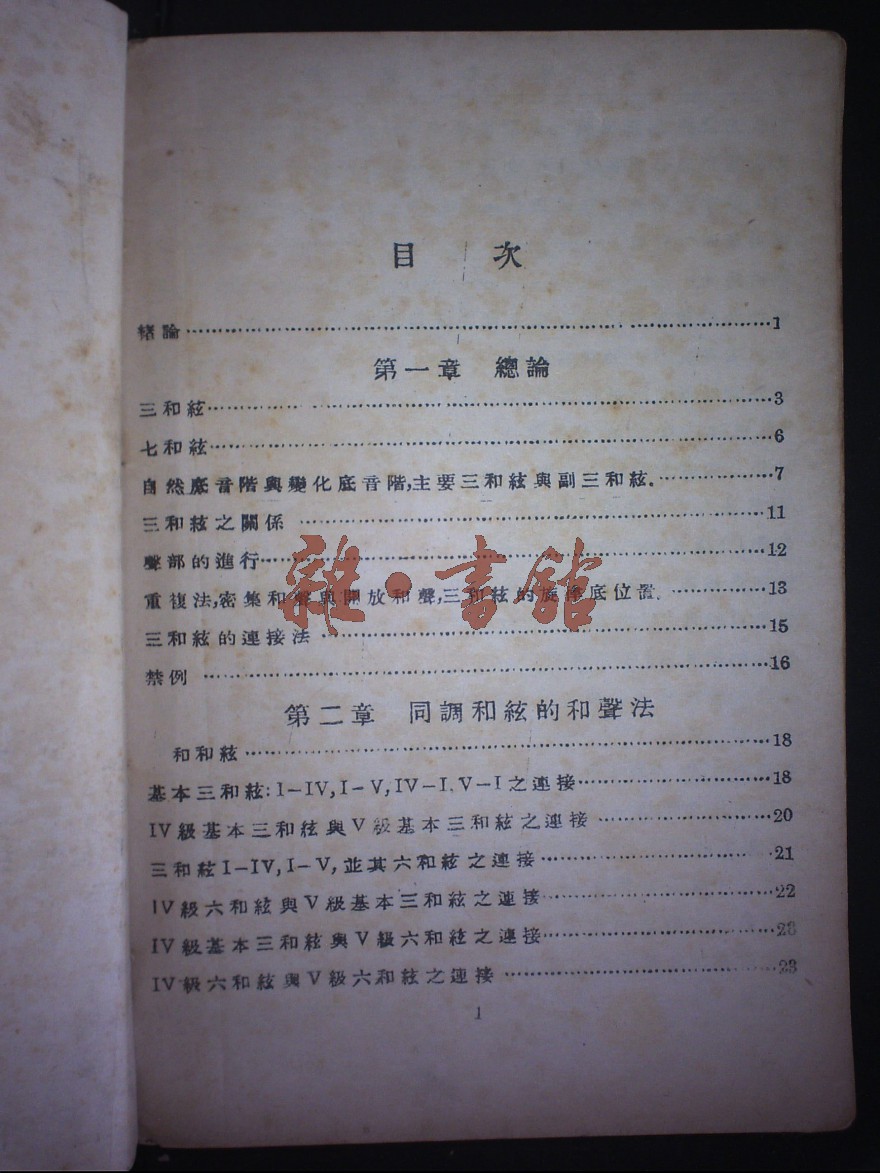 目 次
緒論 1
第一章 總論
三和絃 3
七和絃 6
自然底音階與變化底音階,主要三和絃與副三和絃. 7
三和絃之關係 11
聲部的進行 12
重復法,密集和聲與開放和聲,三和絃的旋律底位置. 13
三和絃的連接法 15
禁例 16
第二章 同調和絃的和聲法
和和絃 18
基本三和絃:I-IV,I-V,IV-I.V-I之連接 18
IV級基本三和絃與V級基本三和絃之連接 20
三和絃I-IV,I-V,並其六和絃之連接 21
IV級六和絃與V級基本三和絃之連接 22
IV級基本三和絃與V級六和絃之連接
IV級六和絃與V級六和絃之連接 23
1
雜·書館